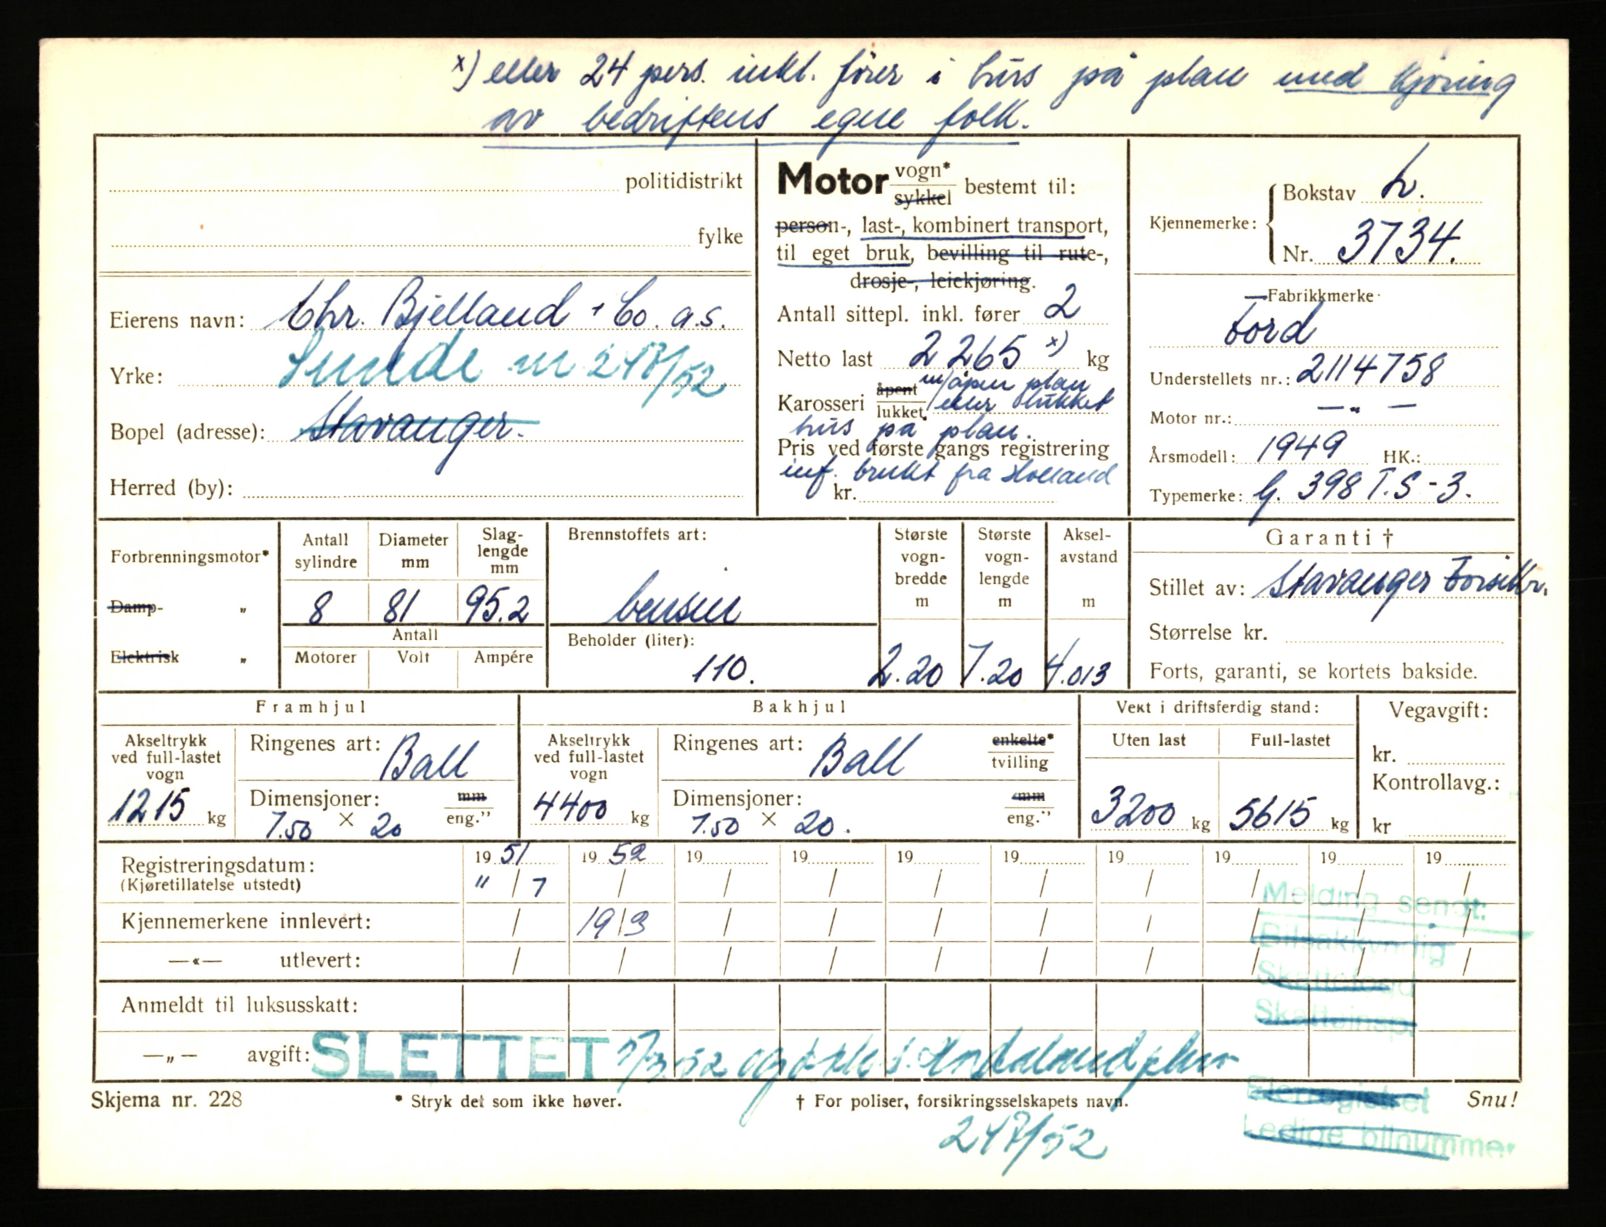 x) eller 24 pers. inkl. fører i hus på plan med kjøring
av bedriftens egne folk.
politidistrikt
fylke
Eierens navn: Chr. Bjelland + Co. a.s.
Yrke: Sunde
Bopel (adresse): Stavanger.
Herred (by):
Motor vogn* sykkel bestemt til:
person-, last-, kombinert transport,
til eget bruk, bevilling til rute-,
drosje-, leiekjøring.
Antall sittepl. inkl. fører 2
Netto last 2265 x) kg
Karosseri åpent lukket m/åpen plan eller lukket
hus på plan.
Pris ved første gangs registrering
inf. brukt fra Holland
kr.
Kjennemerke: Bokstav L.
Nr. 3734.
Fabrikkmerke
Ford
Understellets nr.: 2114758
Motor nr.: — „ —
Årsmodell: 1949 HK.:
Typemerke: G. 398 T.S-3.
Forbrenningsmotor*
Damp- „
Elektrisk „
Antall sylindre Diameter mm Slag-lengde mm
8 81 95.2
Antall
Motorer Volt Ampére
Brennstoffets art:
bensin
Beholder (liter):
110.
Største vogn-bredde m Største vogn-lengde m Aksel-avstand m
2.20 7.20 4.013
Garanti †
Stillet av: Stavanger Forsikr.
Størrelse kr.
Forts, garanti, se kortets bakside.
Framhjul
Akseltrykk ved full-lastet vogn
1215 kg
Ringenes art: Ball
Dimensjoner: mm eng."
7.50 × 20
Bakhjul
Akseltrykk ved full-lastet vogn
4400 kg
Ringenes art: Ball enkelte* tvilling
Dimensjoner: mm eng."
7.50 × 20.
Vekt i driftsferdig stand:
Uten last Full-lastet
3200 kg 5615 kg
Vegavgift:
kr.
Kontrollavg.:
kr
Registreringsdatum: 19 51 19 52 19 19 19 19 19 19 19 19
(Kjøretillatelse utstedt) " / 7 / / / / / / / / /
Kjennemerkene innlevert: / 19/3 / / / / / / / /
—«— utlevert: / / / / / / / / / /
Anmeldt til luksusskatt:
—„— avgift:
Melding sendt:
Bilsakkyndig
Skattefogd
Skatteinsp.
SLETTET
Eierregistret
Ledige bilnummer
Skjema nr. 228
* Stryk det som ikke høver.
† For poliser, forsikringsselskapets navn.
Snu!